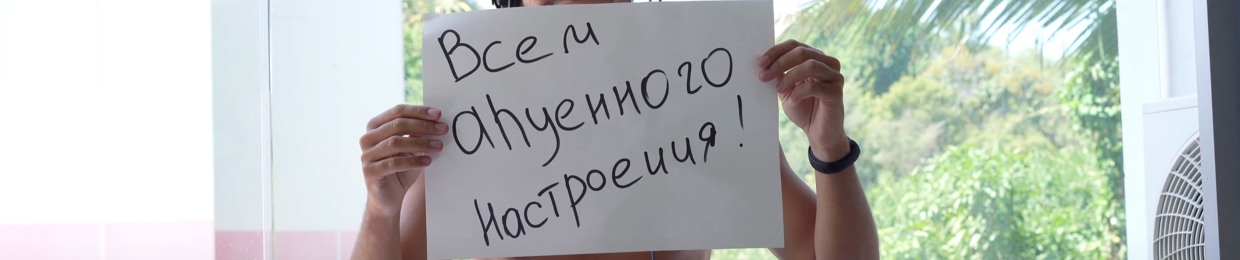 Всем
апуенного
настроения!